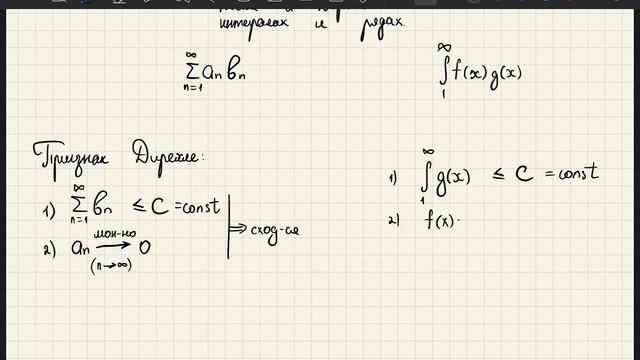 интегралах и рядах.
∞ ∑ n=1 aₙ bₙ
∞ ∫ 1 f(x) g(x)
Признак Дирехле:
1) ∞ ∑ n=1 bₙ ≤ C = const
2) aₙ мон-но → (n→∞) 0
⇒ сход-ся
1) ∞ ∫ 1 g(x) ≤ C = const
2) f(x)